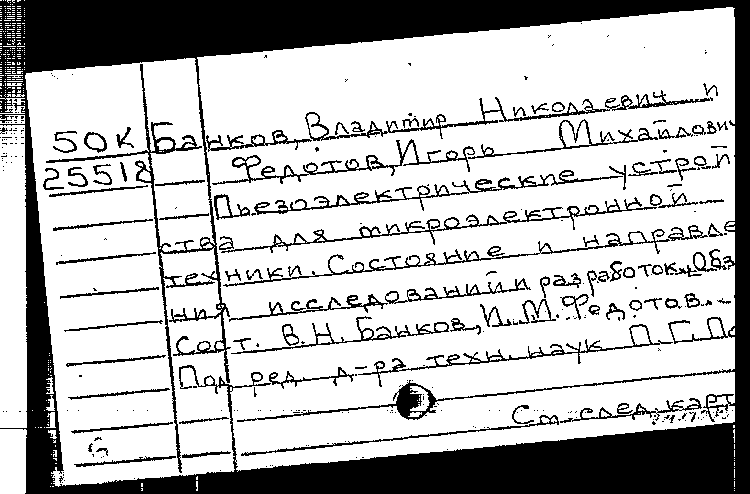 50К Банков, Владимир Николаевич и
25518 Федотов, Игорь Михайлович
Пьезоэлектрические устрой-
ства для микроэлектронной
техники. Состояние и направле
ния исследований и разработок. Обз
Сост. В.Н. Банков, И.М. Федотов. -
Под ред. д-ра техн. наук П.Г. По
См. след. карт